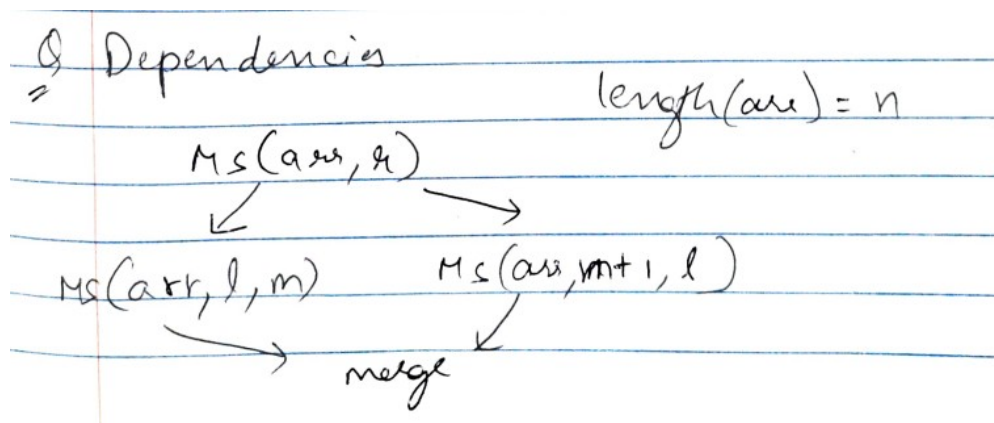 Q Dependencies
length(arr) = n
MS(arr, r)
MS(arr, l, m) MS(arr, m+1, l)
merge